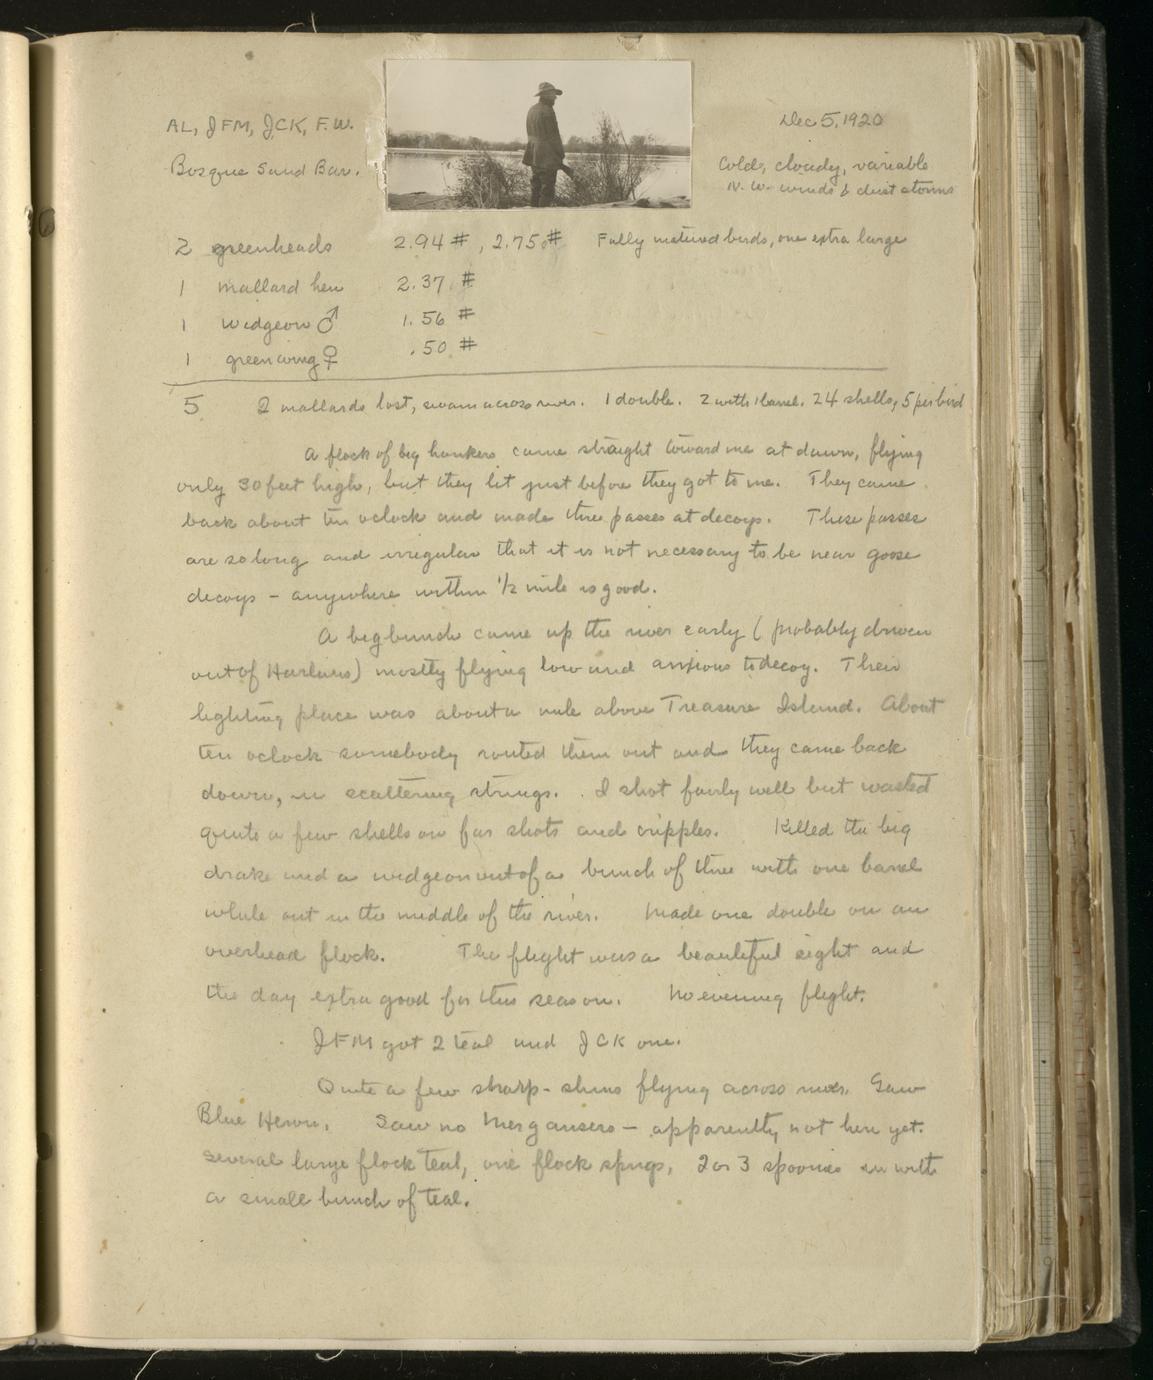 AL, JFM, JCK, F.W.
Bosque Sand Bar.
Dec 5, 1920
Cold, cloudy, variable
N.W. winds & dust storms
2 greenheads 2.94 #, 2.75 # Fully matured birds, one extra large
1 mallard hen 2.37 #
1 widgeon ♂ 1.56 #
1 greenwing ♀ .50 #
5 2 mallards lost, swam across river. 1 double. 2 with 1 barrel. 24 shells, 5 per bird
A flock of big honkers came straight toward me at dawn, flying
only 30 feet high, but they lit just before they got to me. They came
back about ten oclock and made three passes at decoys. These passes
are so long and irregular that it is not necessary to be near goose
decoys - anywhere within 1/2 mile is good.
A big bunch came up the river early (probably driven
out of Harlans) mostly flying low and anxious to decoy. Their
lighting place was about a mile above Treasure Island. About
ten oclock somebody routed them out and they came back
down, in scattering strings. I shot fairly well but wasted
quite a few shells on far shots and cripples. Killed the big
drake and a widgeon out of a bunch of three with one barrel
while out in the middle of the river. Made one double on an
overhead flock. The flight was a beautiful sight and
the day extra good for this season. No evening flight.
JFM got 2 teal and JCK one.
Quite a few sharp-shins flying across river. Saw
Blue Heron. Saw no Mergansers - apparently not here yet.
Several large flock teal, one flock sprigs, 2 or 3 spoonies in with
a small bunch of teal.